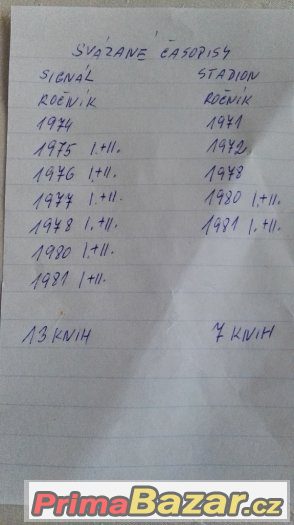 SVÁZANÉ ČASOPISY
SIGNÁL STADION
ROČNÍK ROČNÍK
1974 1971
1975 I.+II. 1972
1976 I.+II. 1978
1977 I.+II. 1980 I.+II.
1978 I.+II. 1981 I.+II.
1980 I.+II.
1981 I+II.
13 KNIH 7 KNIH
PrimaBazar.cz